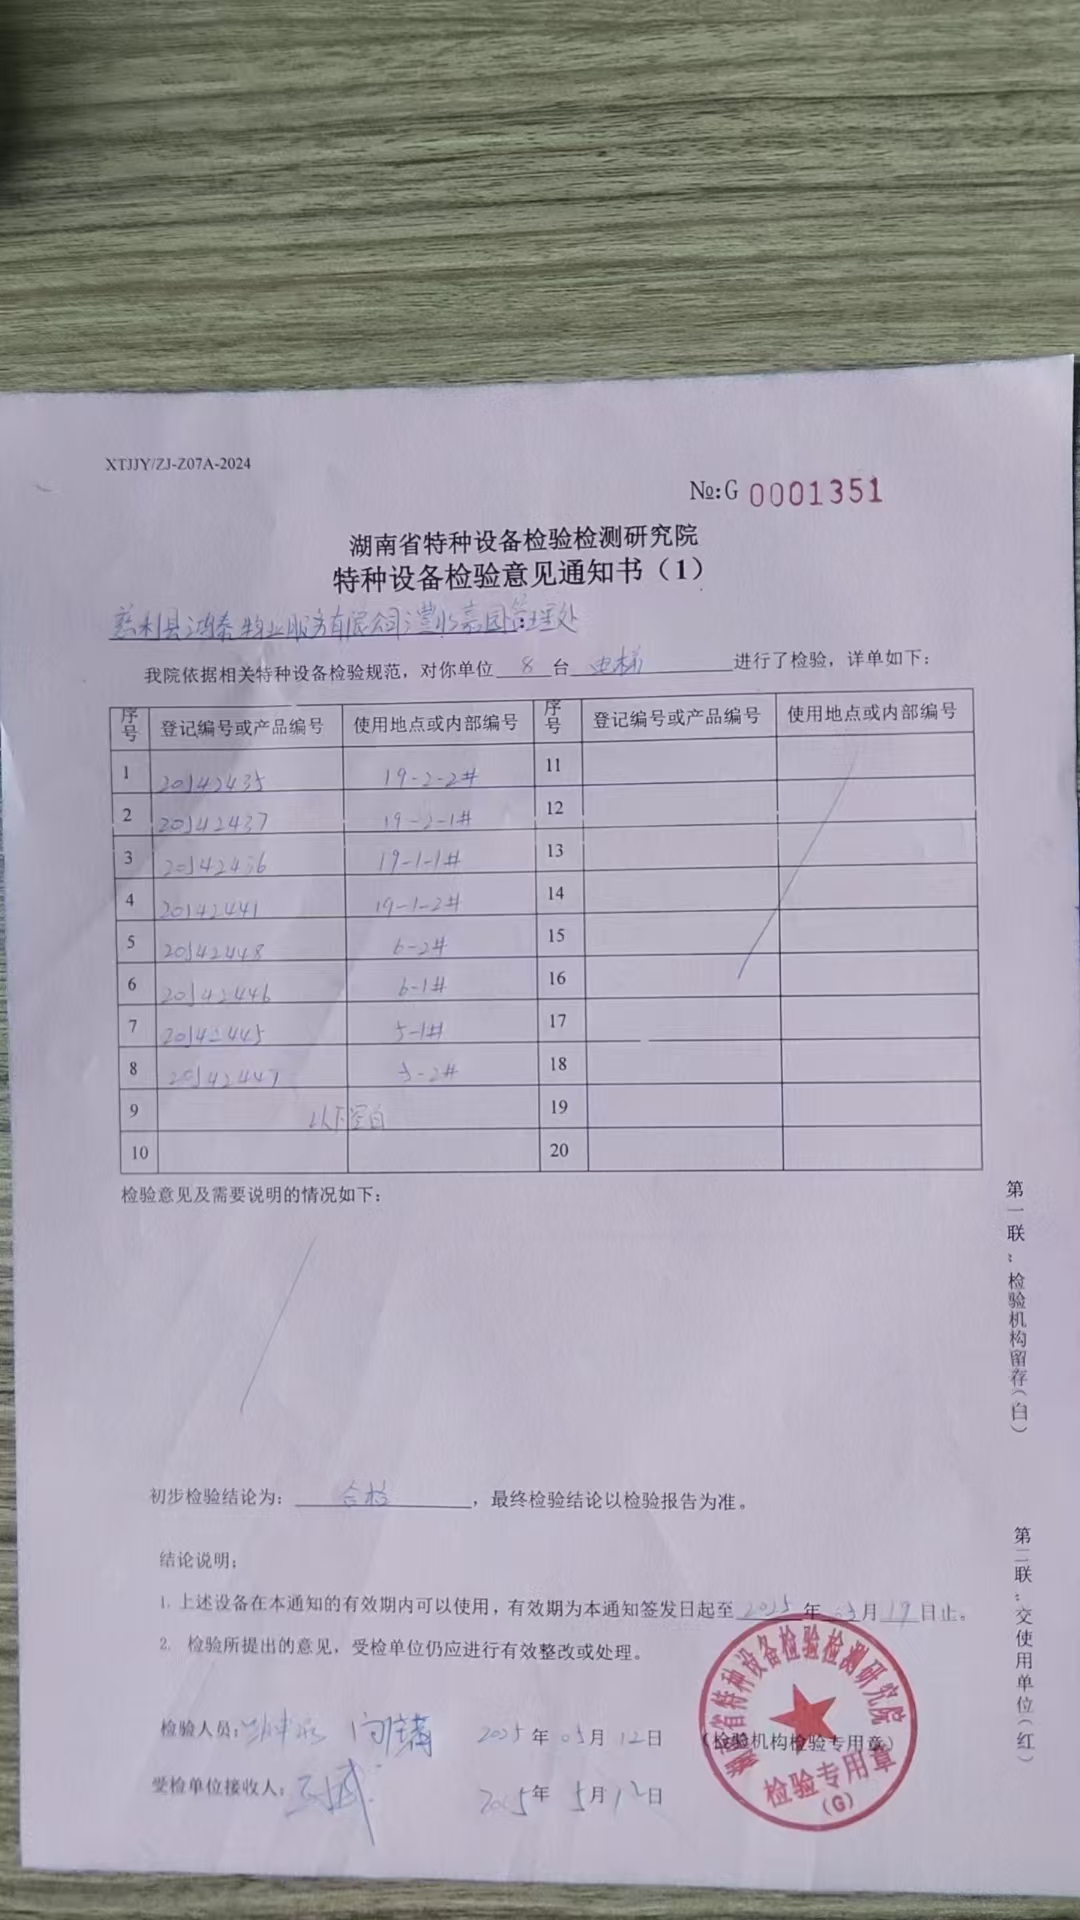 XTJJY/ZJ-Z07A-2024
№:G 0001351
湖南省特种设备检验检测研究院
特种设备检验意见通知书（1）
慈利县鸿泰物业服务有限公司澧水嘉园管理处
我院依据相关特种设备检验规范，对你单位 8 台 电梯 进行了检验，详单如下：
序号 登记编号或产品编号 使用地点或内部编号 序号 登记编号或产品编号 使用地点或内部编号
1 20142435 19-2-2# 11
2 20142437 19-2-1# 12
3 20142436 19-1-1# 13
4 20142441 19-1-2# 14
5 20142448 6-2# 15
6 20142446 6-1# 16
7 20142445 5-1# 17
8 20142447 5-2# 18
9 以下空白 19
10 20
检验意见及需要说明的情况如下：
初步检验结论为： 合格 ，最终检验结论以检验报告为准。
结论说明；
1. 上述设备在本通知的有效期内可以使用，有效期为本通知签发日起至 2025 年 05 月 19 日止。
2. 检验所提出的意见，受检单位仍应进行有效整改或处理。
检验人员: 2025 年 05 月 12 日 （检验机构检验专用章）
受检单位接收人： 2025 年 5 月 12 日
湖南省特种设备检验检测研究院
检验专用章
(G)
第一联：检验机构留存（白）
第二联：交使用单位（红）